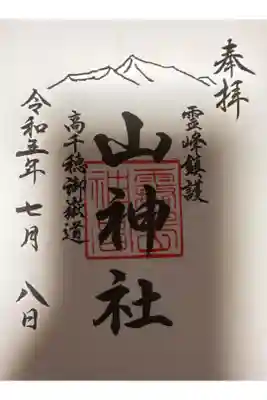 奉拝
霊峰鎮護
山神社
高千穂御嶽道
令和五年 七月 八日